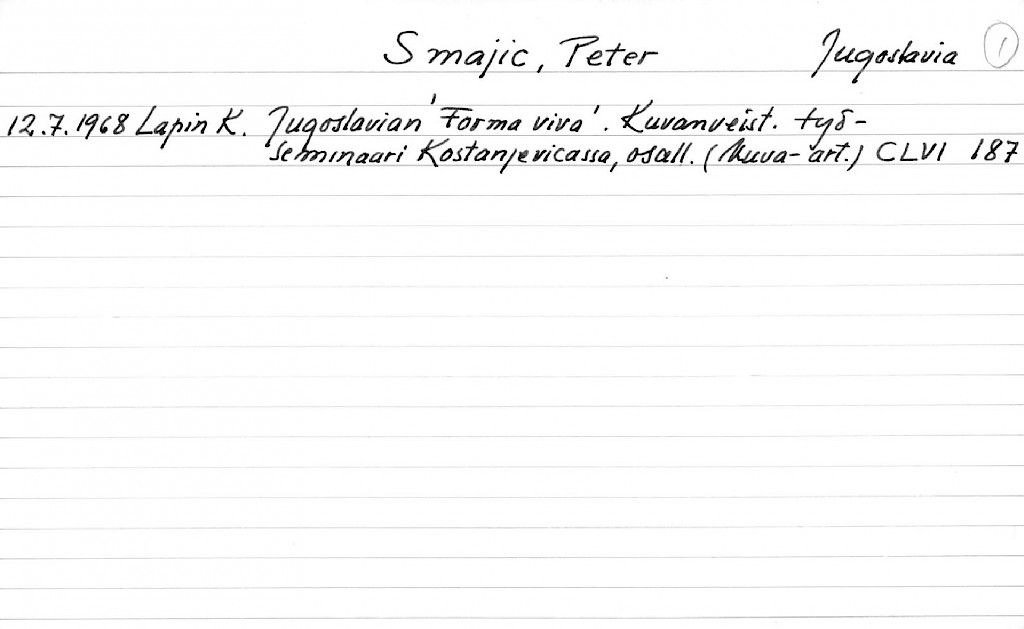 Smajic, Peter Jugoslavia 1
12.7.1968 Lapin K. Jugoslavian 'Forma viva'. Kuvanveist. työ-
seminaari Kostanjevicassa, osall. (Kuva-art.) CLVI 187